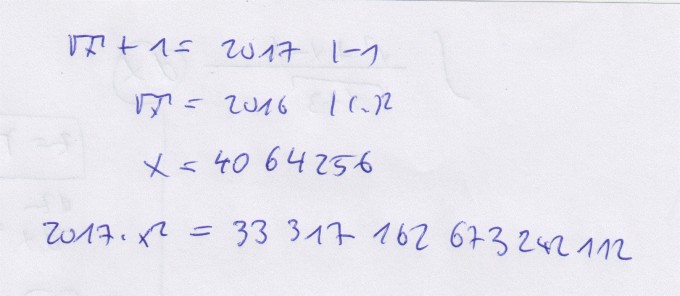 √x + 1 = 2017 |-1
√x = 2016 |(.)²
x = 40 64256
2017 · x² = 33 317 162 673 242 112